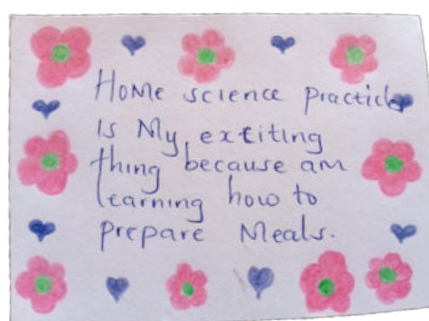 Home science practicle
Is My exctiting
thing because am
learning how to
prepare Meals.